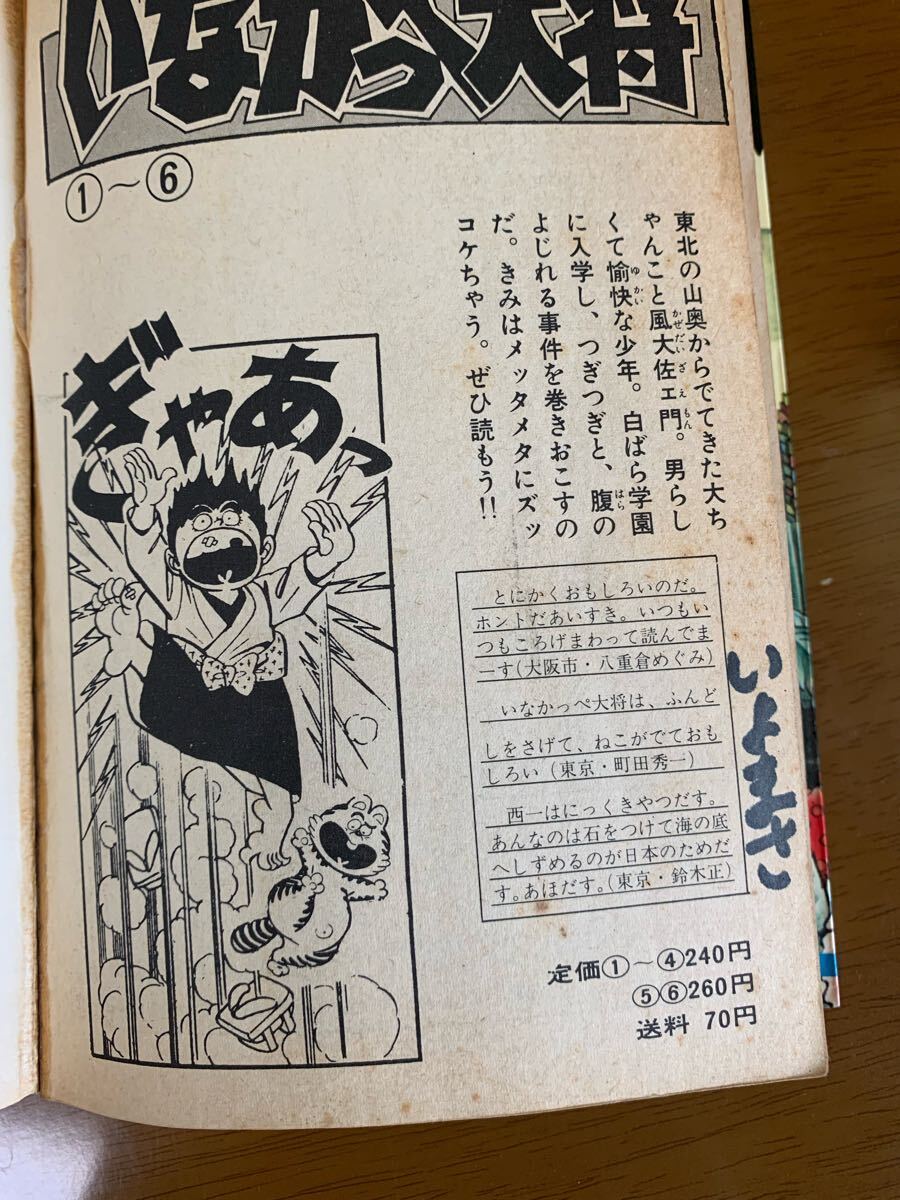 いなかっぺ大将
①～⑥
東北の山奥からでてきた大ち
ゃんこと風大佐ェ門。男らし
くて愉快な少年。白ばら学園
に入学し、つぎつぎと、腹の
よじれる事件を巻きおこすの
だ。きみはメッタメタにズッ
コケちゃう。ぜひ読もう!!
かぜだいざえもん
ゆかい
はら
ぎゃあっ
とにかくおもしろいのだ。
ホントだあいすき。いつもい
つもころげまわって読んでま
ーす(大阪市・八重倉めぐみ)
いなかっぺ大将は、ふんど
しをさげて、ねこがでておも
しろい(東京・町田秀一)
西一はにっくきやつだす。
あんなのは石をつけて海の底
へしずめるのが日本のためだ
す。あほだす。(東京・鈴木正)
いよまさ
定価①～④240円
⑤⑥260円
送料 70円